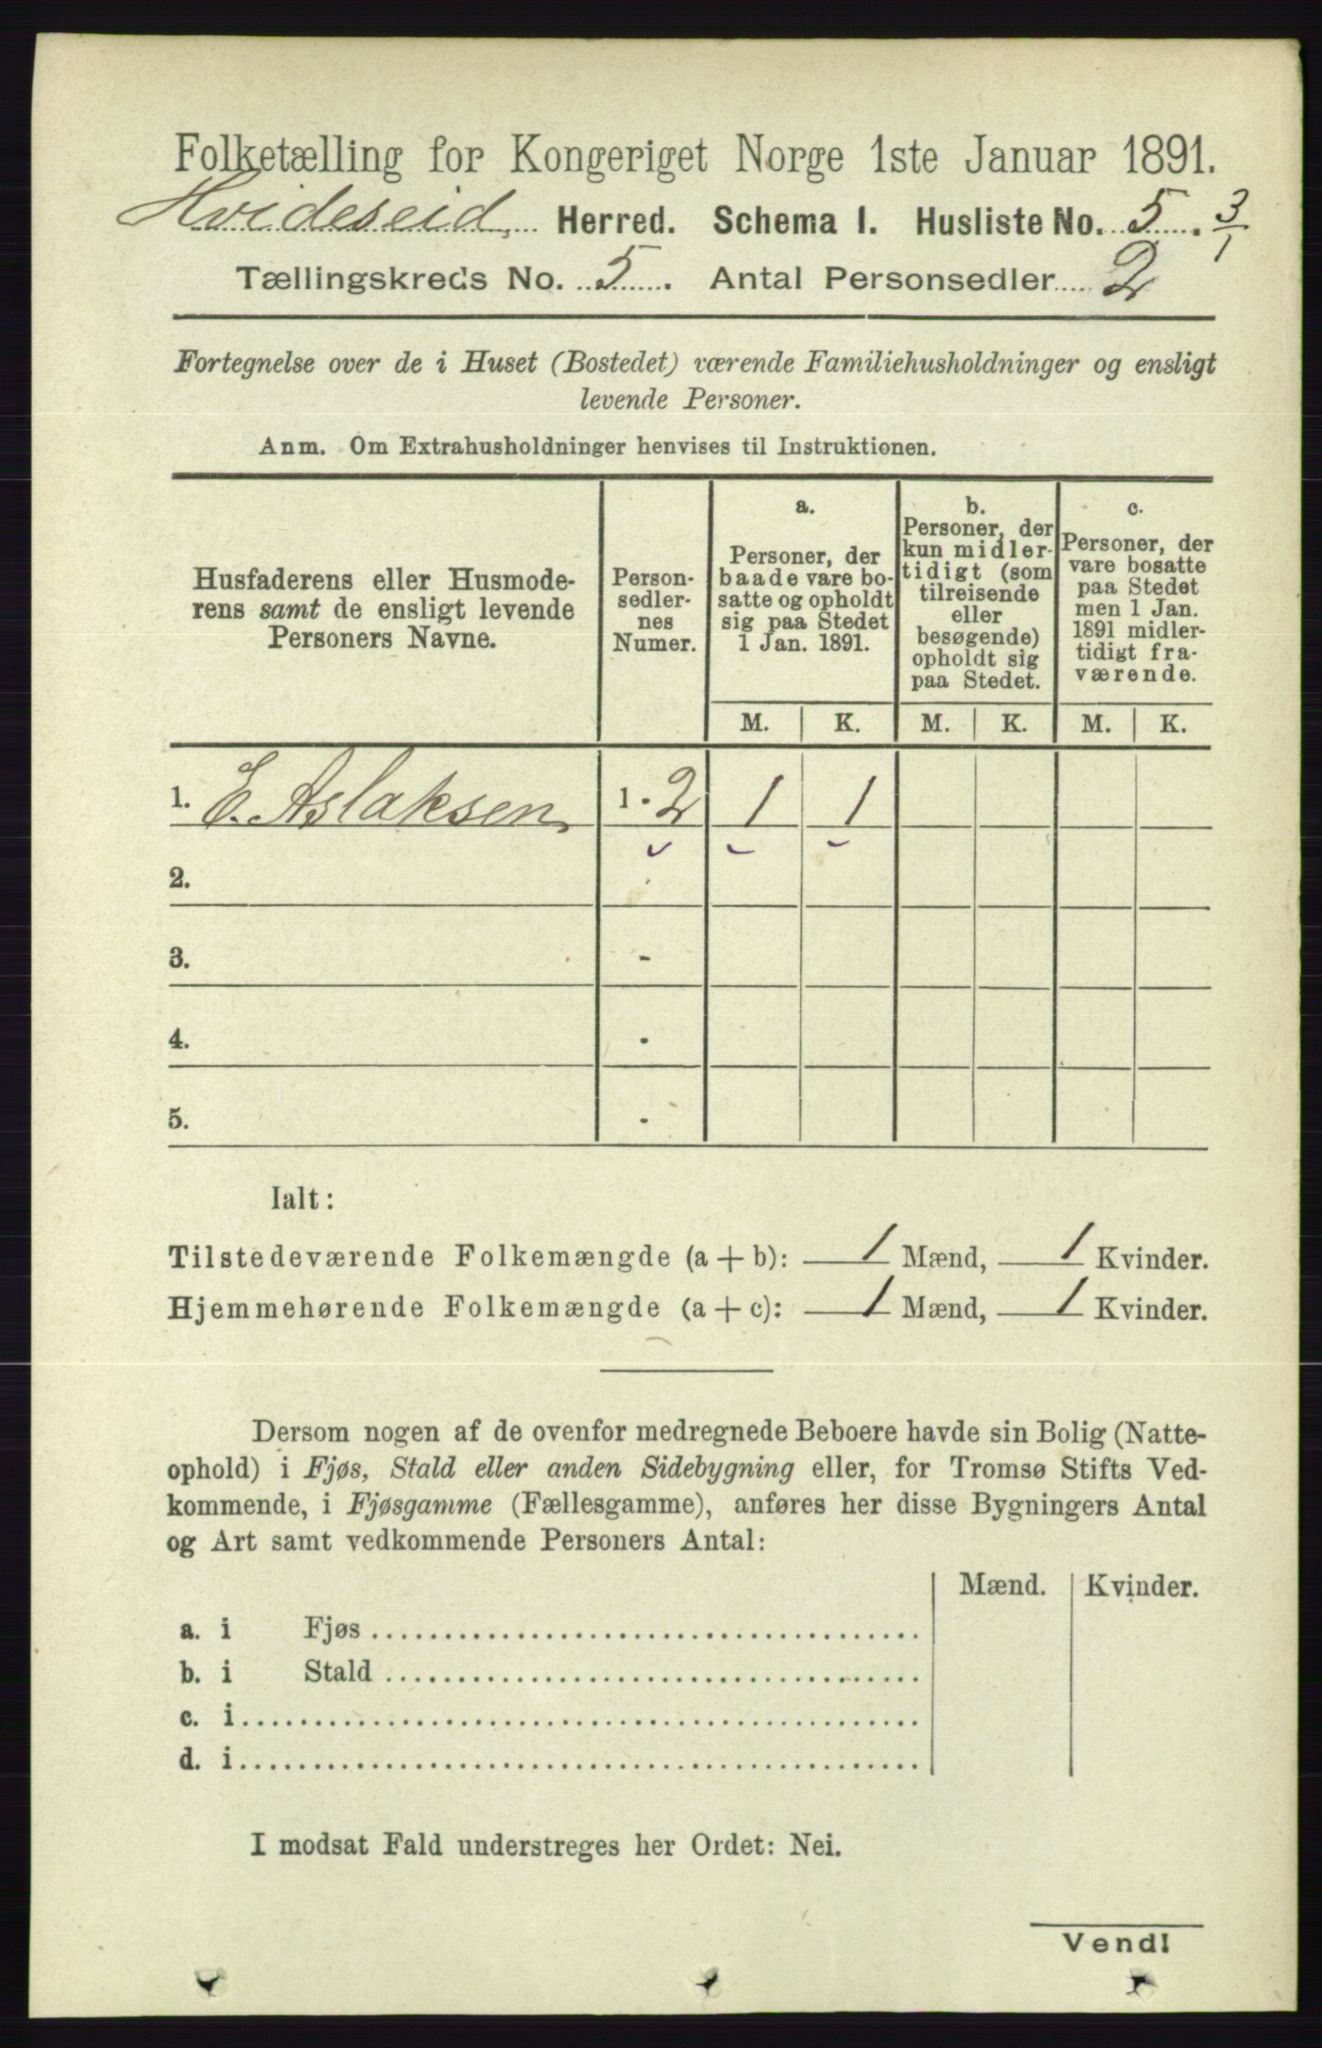 Folketælling for Kongeriget Norge 1ste Januar 1891.
Hvideseid Herred. Schema 1. Husliste No. 5. 3/1
Tællingskreds No. 5. Antal Personsedler 2
Fortegnelse over de i Huset (Bostedet) værende Familiehusholdninger og ensligt
levende Personer.
Anm. Om Extrahusholdninger henvises til Instruktionen.
Husfaderens eller Husmode-
rens samt de ensligt levende
Personers Navne.
Person-
sedler-
nes
Numer.
a.
Personer, der
baade vare bo-
satte og opholdt
sig paa Stedet
1 Jan. 1891.
b.
Personer, der
kun midler-
tidigt (som
tilreisende
eller
besøgende)
opholdt sig
paa Stedet.
c.
Personer, der
vare bosatte
paa Stedet
men 1 Jan.
1891 midler-
tidigt fra-
værende.
M. K. M. K. M. K.
1. E. Aslaksen 1 - 2 1 1
2.
3. -
4. -
5. -
Ialt:
Tilstedeværende Folkemængde (a + b): 1 Mænd, 1 Kvinder.
Hjemmehørende Folkemængde (a + c): 1 Mænd, 1 Kvinder.
Dersom nogen af de ovenfor medregnede Beboere havde sin Bolig (Natte-
ophold) i Fjøs, Stald eller anden Sidebygning eller, for Tromsø Stifts Ved-
kommende, i Fjøsgamme (Fællesgamme), anføres her disse Bygningers Antal
og Art samt vedkommende Personers Antal:
Mænd. Kvinder.
a. i Fjøs
b. i Stald
c. i
d. i
I modsat Fald understreges her Ordet: Nei.
Vend!